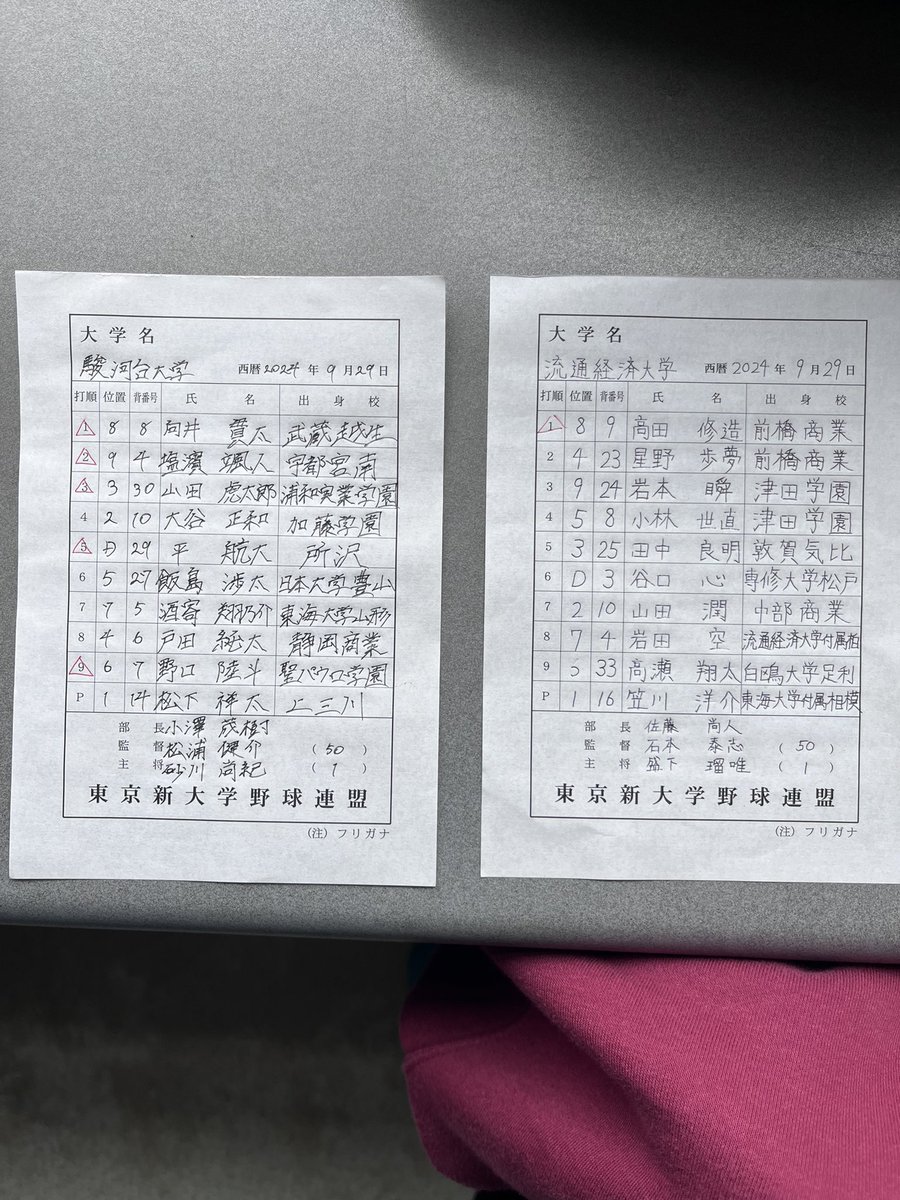 大学名
駿河台大学 西暦 2024 年 9 月 29 日
打順 位置 背番号 氏 名 出 身 校
1 8 8 向井 貫太 武蔵越生
2 9 4 塩濱 颯人 宇都宮南
3 3 30 山田 虎太郎 浦和実業学園
4 2 10 大谷 正和 加藤学園
5 D 29 平 航太 所沢
6 5 27 飯島 渉太 日本大学豊山
7 7 5 酒寄 翔乃介 東海大学山形
8 4 6 戸田 統太 静岡商業
9 6 7 野口 陸斗 聖パウロ学園
P 1 14 松下 祥太 上三川
部 長 小澤 茂樹
監 督 松浦 健介 (50)
主 将 砂川 尚紀 (1)
東京新大学野球連盟
(注) フリガナ
大学名
流通経済大学 西暦 2024 年 9 月 29 日
打順 位置 背番号 氏 名 出 身 校
1 8 9 高田 修造 前橋商業
2 4 23 星野 歩夢 前橋商業
3 9 24 岩本 瞬 津田学園
4 5 8 小林 世直 津田学園
5 3 25 田中 良明 敦賀気比
6 D 3 谷口 心 専修大学松戸
7 2 10 山田 潤 中部商業
8 7 4 岩田 空 流通経済大学付属柏
9 33 高瀬 翔太 白鴎大学足利
P 1 16 笠川 洋介 東海大学付属相模
部 長 佐藤 尚人
監 督 石本 泰志 (50)
主 将 盛下 瑠唯 (1)
東京新大学野球連盟
(注) フリガナ